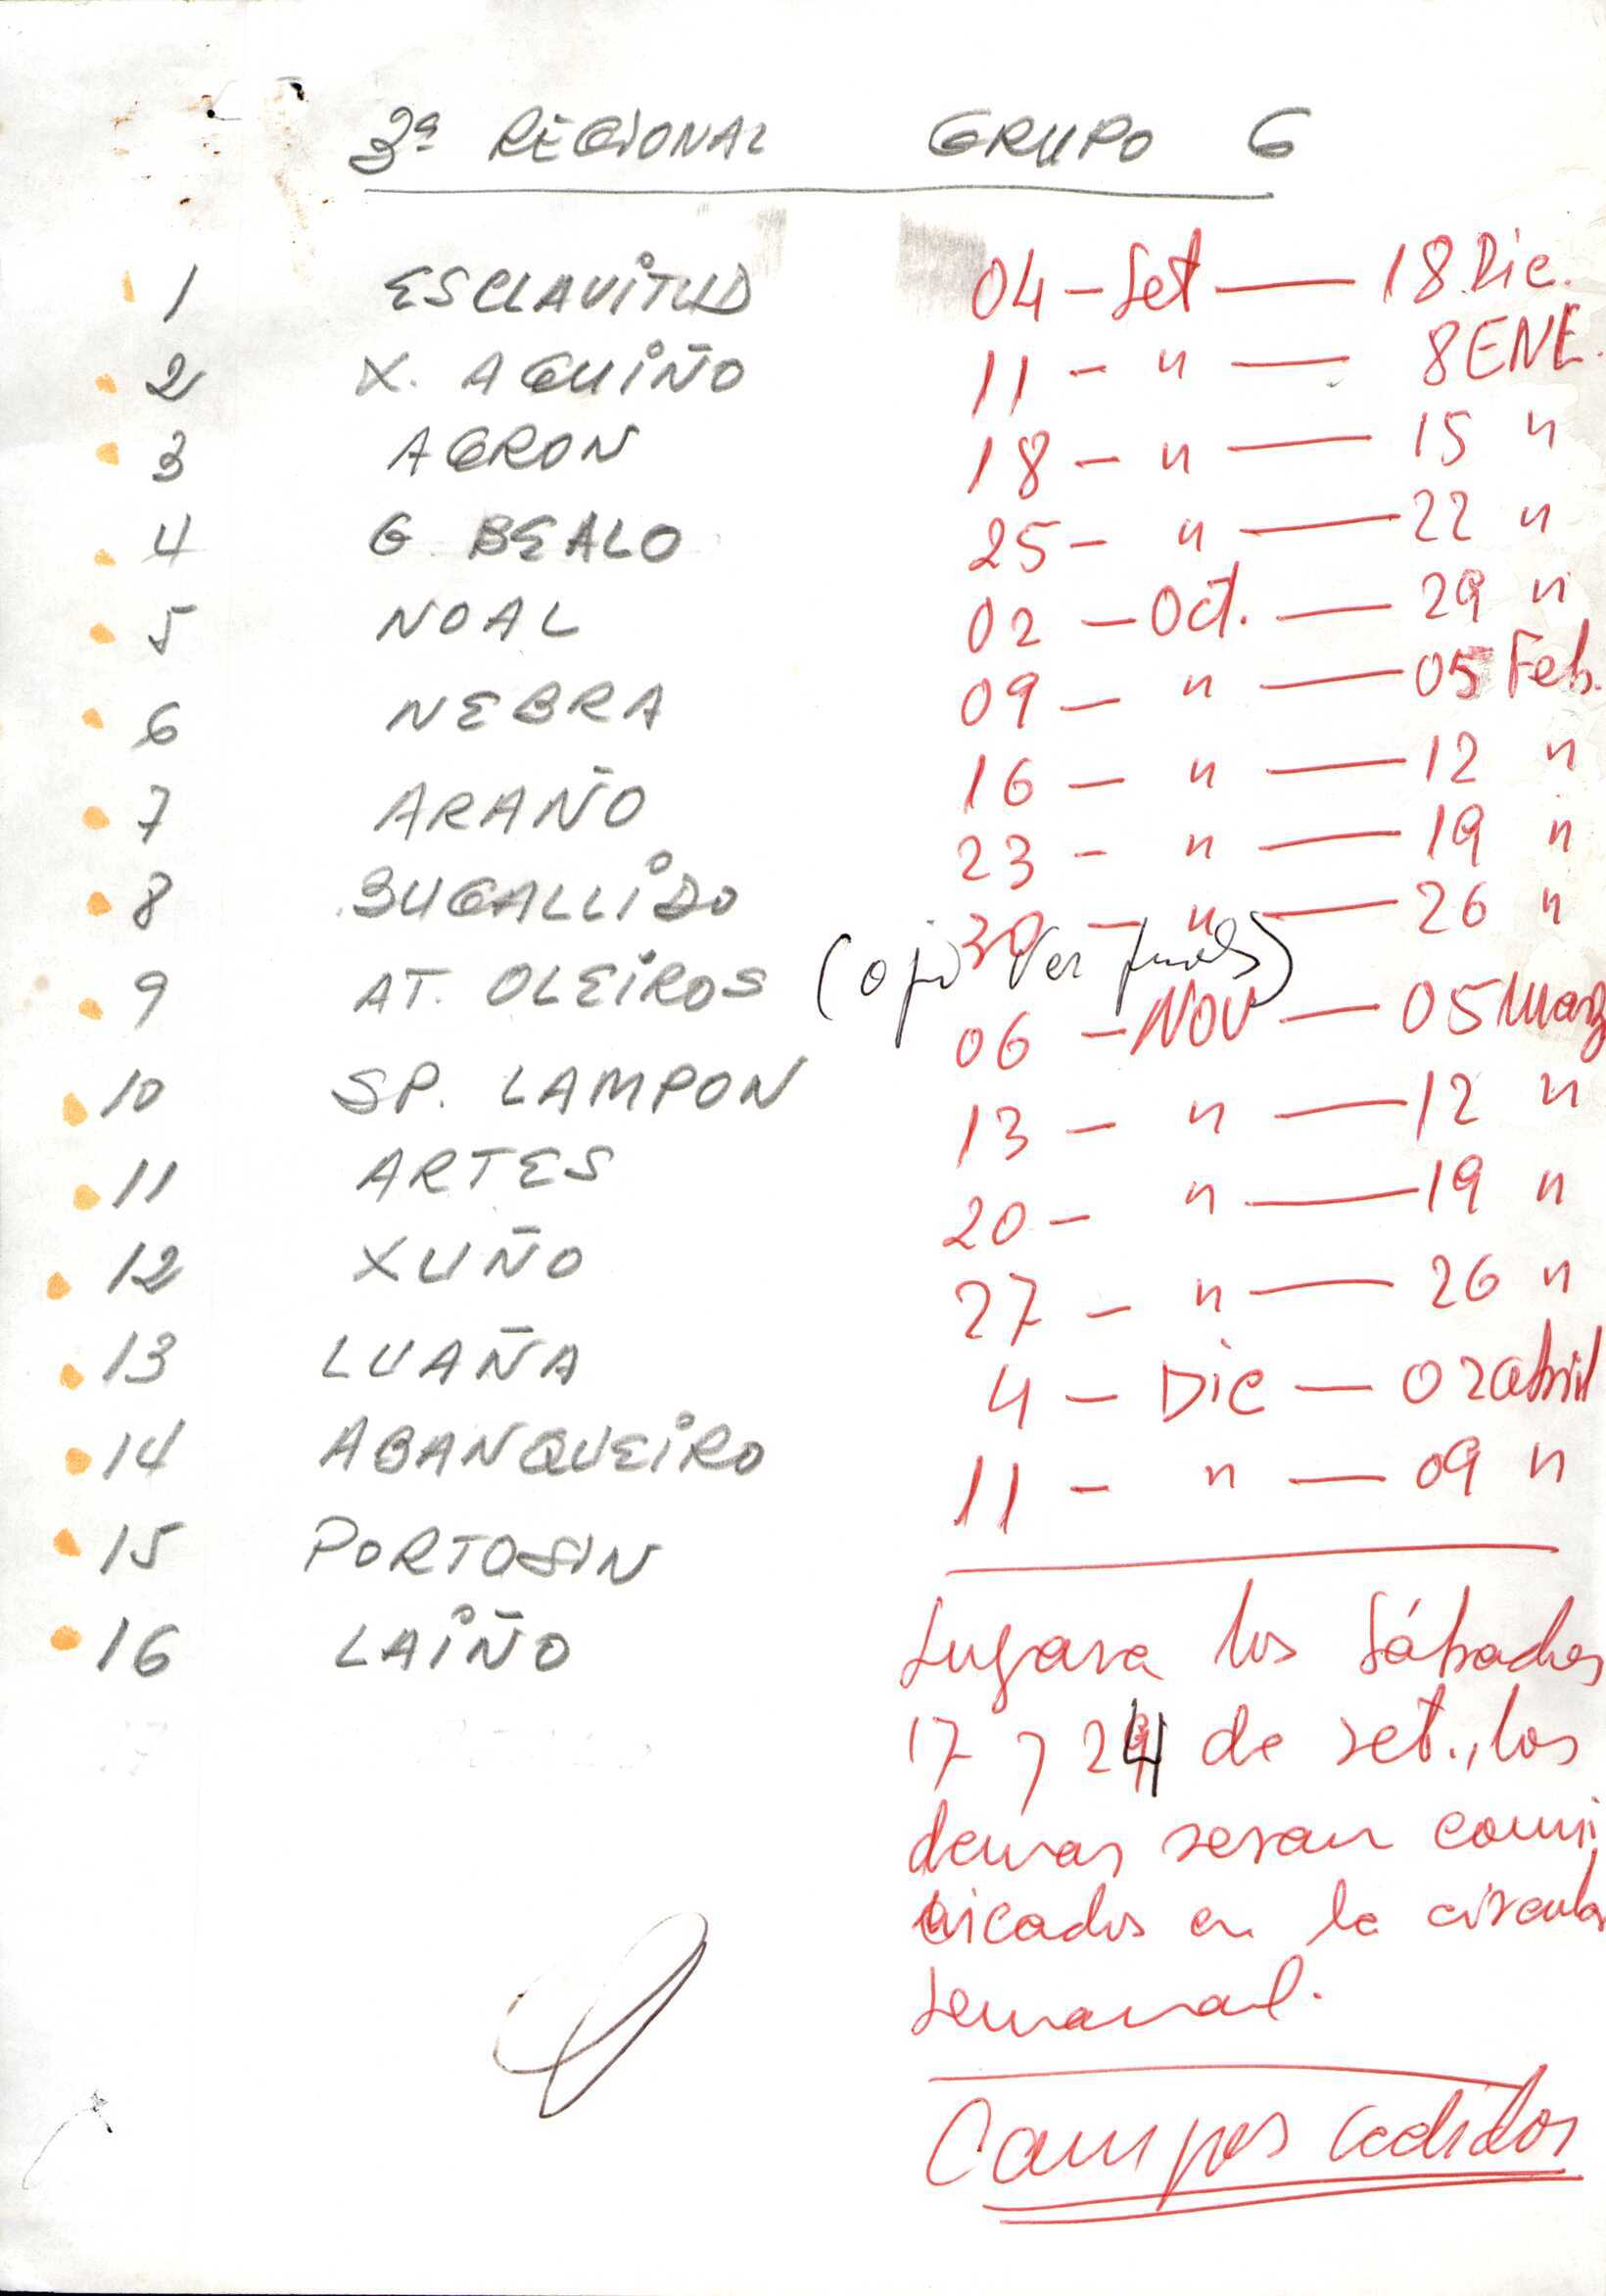 3ª REGIONAL GRUPO 6
1 ESCLAVITUD 04 - Set — 18 Dic.
2 X. AGUIÑO 11 - " — 8 ENE.
3 AGRON 18 - " — 15 "
4 G. BEALO 25 - " — 22 "
5 NOAL 02 - Oct. — 29 "
6 NEBRA 09 - " — 05 Feb.
7 ARAÑO 16 - " — 12 "
8 BUGALLIDO 23 - " — 19 "
30 - " — 26 "
9 AT. OLEIROS (ojo Ver finales)
06 - NOV — 05 Marz
10 SP. LAMPON 13 - " — 12 "
11 ARTES 20 - " — 19 "
12 XUÑO 27 - " — 26 "
13 LUAÑA 4 - Dic — 02 abril
14 ABANQUEIRO 11 - " — 09 "
15 PORTOSIN
16 LAIÑO
Jugara los Sábados
17 y 24 de set., los
demas seran comu
nicados en la circular
semanal.
Campos cedidos